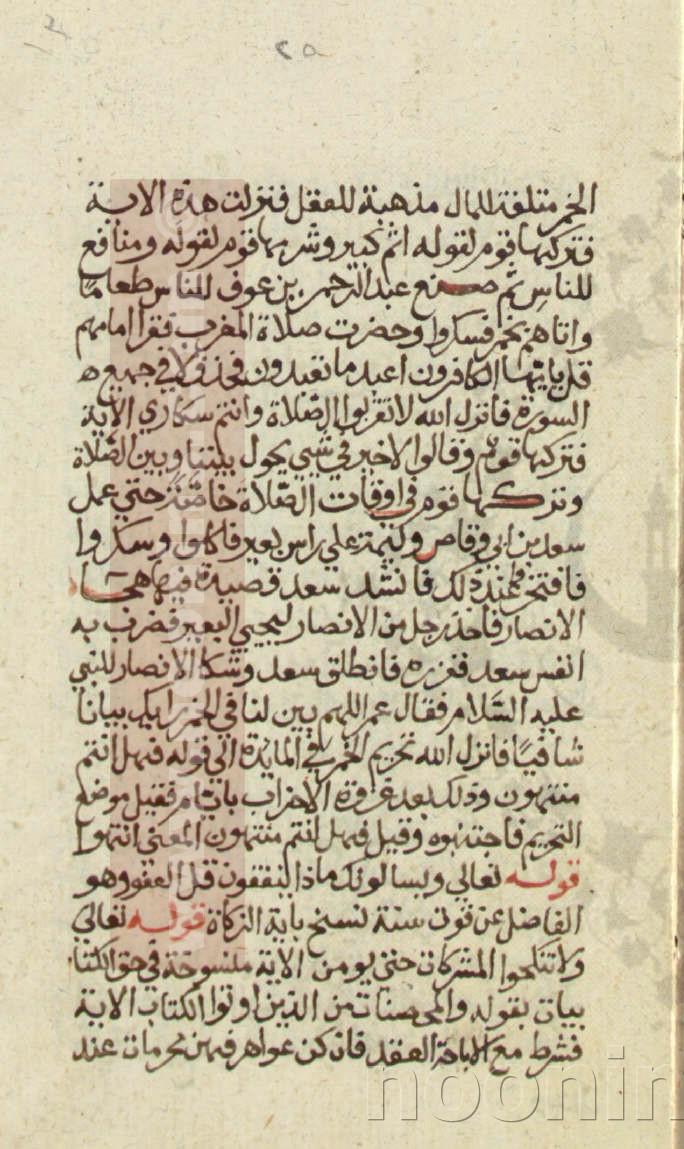 ٢٥
الخمر متلفة للمال مذهبة للعقل فنزلت هذه الاية
فتركها قوم لقوله اثم كبير وشربها قوم لقوله ومنافع
للناس ثم صنع عبد الرحمن بن عوف للناس طعاما
واتاهم بخمر فسكروا وحضرت صلاة المغرب فقرا امامهم
قل يايها الكافرون اعبد ما تعبدون فحذف لا في جميع
السورة فانزل الله لا تقربوا الصلاة وانتم سكاري الاية
فتركها قوم وقالوا لاخير في شيي يحول بيننا وبين الصلاة
وتركها قوم في اوقات الصلاة خاصة حتي عمل
سعد بن ابي وقاص وليمة علي راس بعير فاكلوا وسكروا
فافتخر عند ذلك فانشد سعد قصيدة فيها هجا
الانصار فاخذ رجل من الانصار لحيي البعير فضرب به
انف سعد ففزره فانطلق سعد وشكا الانصار للنبي
عليه السلام فقال عمر اللهم بين لنا في الخمر رايك بيانا
شافيا فانزل الله تحريم الخمر في المايدة الي قوله فهل انتم
منتهون وذلك بعد غزوة الاحزاب بايام فقيل موضع
التحريم فاجتنبوه وقيل فهل انتم منتهون المعني انتهوا
قوله تعالي ويسالونك ماذا ينفقون قل العفو وهو
الفاضل عن قوت سنة نسخ باية الزكاة قوله تعالي
ولا تنكحوا المشركات حتي يومن الاية منسوخة في حق الكتا
بيات بقوله والمحصنات من الذين اوتوا الكتاب الاية
فشرط مع الاباحة العقد فان كن عواهر فهن محرمات عند
noornin